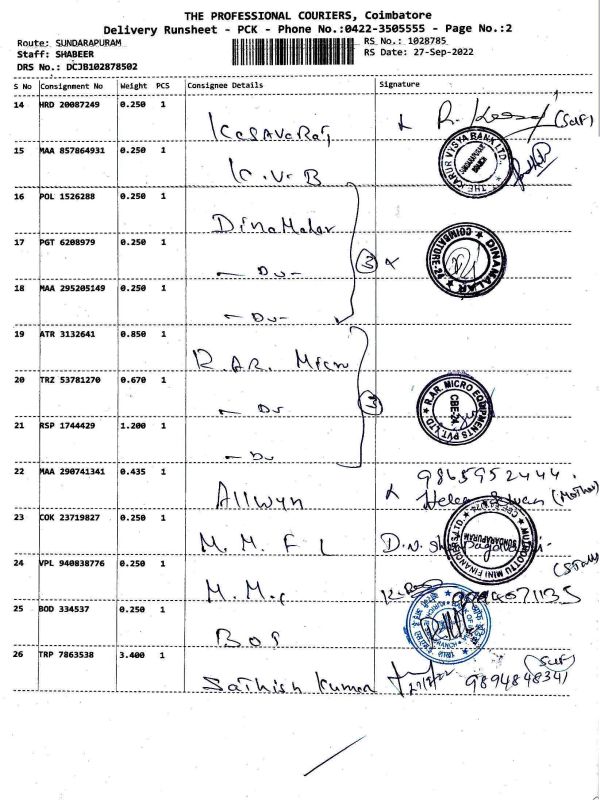 THE PROFESSIONAL COURIERS, Coimbatore
Delivery Runsheet - PCK - Phone No.:0422-3505555 - Page No.:2
Route: SUNDARAPURAM
Staff: SHABEER
DRS No.: DCJB102878502
RS No.: 1028785
RS Date: 27-Sep-2022
S No Consignment No Weight PCS Consignee Details Signature
14 HRD 20087249 0.250 1 Kesavaraj R. (Self)
15 MAA 857864931 0.250 1 K.V.B THE KARUR VYSYA BANK LTD. SUNDARAPURAM BRANCH
16 POL 1526288 0.250 1 DinaMalar
17 PGT 6208979 0.250 1 - Do - 3 DINAMALAR COIMBATORE-24
18 MAA 295205149 0.250 1 - Do -
19 ATR 3132641 0.850 1 R.AR. Micro
20 TRZ 53781270 0.670 1 - Do - 3 R.AR. MICRO EQUIPMENTS PVT. LTD. CBE-24
21 RSP 1744429 1.200 1 - Do -
22 MAA 290741341 0.435 1 Allwyn 9865952444. Helen (Mother)
23 COK 23719827 0.250 1 M.M.F L D.N. MUTHOOTTU MINI FINANCIERS LTD. SUNDARAPURAM
24 VPL 940838776 0.250 1 M.M. (Staff)
25 BOD 334537 0.250 1 BOI
26 TRP 7863538 3.400 1 Sathish Kumar (Self) 9894848341